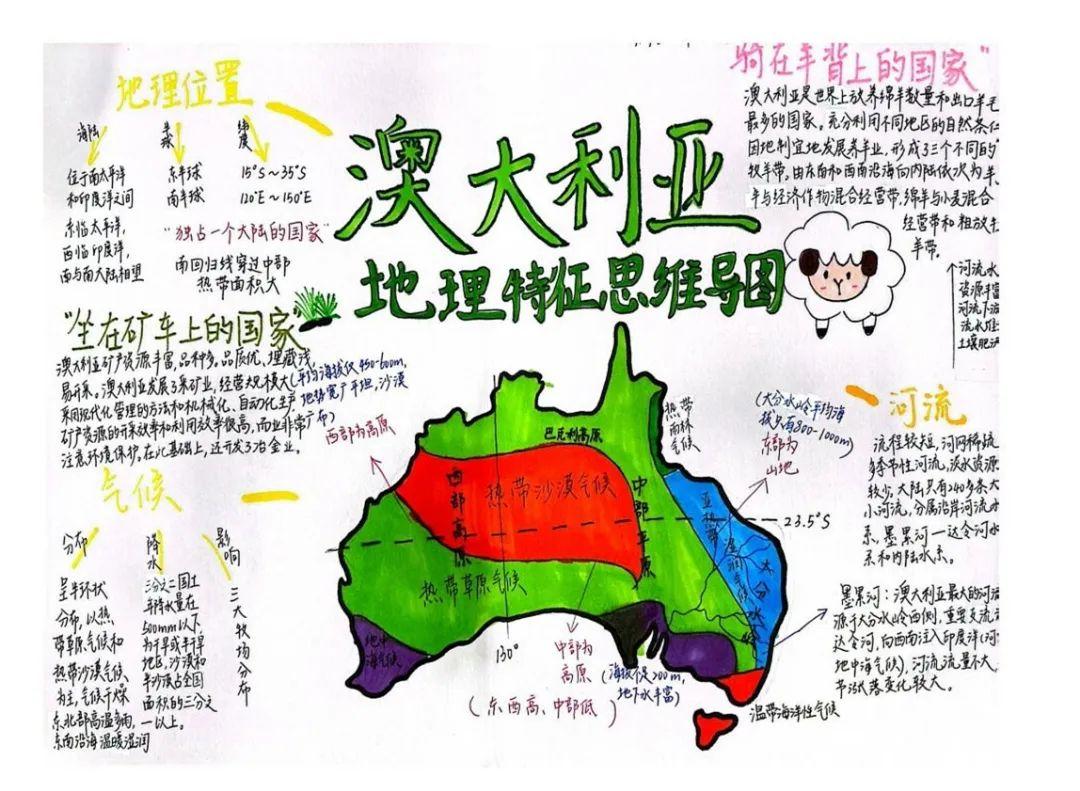 澳大利亚
地理特征思维导图
地理位置
海陆
半球
纬度
位于南太平洋
和印度洋之间
东临太平洋，
西临印度洋，
南与南大陆相望
东半球
南半球
15°S～35°S
120°E～150°E
"独占一个大陆的国家"
南回归线穿过中部
热带面积大
"坐在矿车上的国家"
澳大利亚矿产资源丰富，品种多。品质优、埋藏浅，
易开采。澳大利亚发展了采矿业，经营大规模大，
采用现代化管理的方法和机械化、自动化生产
矿产资源的开采效率和利用效率很高，而业非常
注意环境保护。在此基础上，还开发了冶金业。
(平均海拔仅450-600m，
地势宽广平坦，沙漠
广布)
西部为高原
气候
分布
降水
影响
呈半环状
分布，以热
带草原气候和
热带沙漠气候、
为主，气候干燥
东北部高温多雨，
东南沿海温暖湿润
三分之二国土
年降水量在
500mm以下，
为干旱或半干旱
地区，沙漠和
半沙漠占全国
面积的三分之
一以上。
三大牧均分布
骑在羊背上的国家"
澳大利亚是世界上放养绵羊数量和出口羊毛
最多的国家。充分利用不同地区的自然条仁
因地制宜地发展养羊业，形成了三个不同的
牧羊带。由东南和西南沿海向内陆依次为羊、
羊与经济作物混合经营带，绵羊与小麦混合
经营带和粗放牛
羊带。
河流水
资源丰富
河流下游
流水堆
土壤肥沃
河流
流程较短，河网稀疏
多季节性河流，淡水资源
较少。大陆只有240多条大
小河流，分属沿岸河流水
系、墨累河一达令河水
系和内陆水系。
墨累河：澳大利亚最大的河流
源于大分水岭西侧，重要支流
达令河，向西南注入印度洋(河
地中海气候)，河流流量不大
节涨落变化较大。
(大分水岭平均海
拔只有800-1000m)
东部为
山地
热带
雨林
气候
巴瓦利高原
西部高原
热带沙漠气候
中部平原
亚热带
湿润气候
大分水岭
23.5°S
热带草原气候
地中
海气候
130°
中部为
高原
(海拔不足200m，
地下水丰富)
(东西高、中部低)
温带海洋性气候